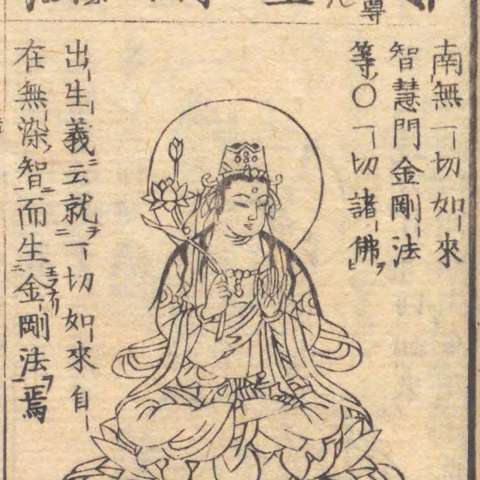 尊
南無一切如來
智慧門金剛法
等〇一切諸佛ヲ
出生義云就二一切如來自
在無染智一而生二金剛法ヲ一焉